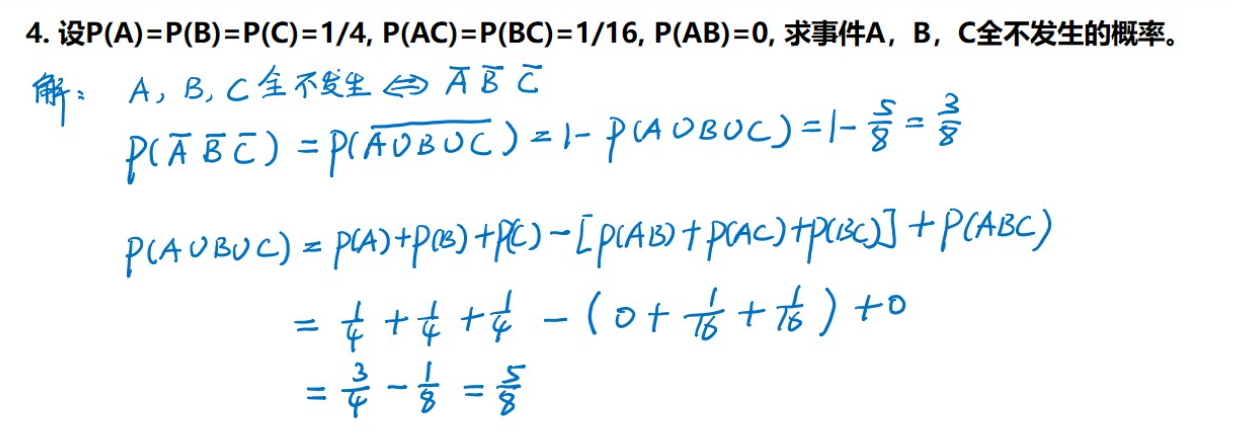 4. 设P(A)=P(B)=P(C)=1/4, P(AC)=P(BC)=1/16, P(AB)=0, 求事件A，B，C全不发生的概率。
解: A, B, C 全不发生 ⇔ A̅ B̅ C̅
P(A̅ B̅ C̅) = P(A̅∪̅B̅∪̅C̅) = 1 - P(A∪B∪C) = 1 - 5/8 = 3/8
P(A∪B∪C) = P(A)+P(B)+P(C) - [P(AB)+P(AC)+P(BC)] + P(ABC)
= 1/4 + 1/4 + 1/4 - (0 + 1/16 + 1/16) + 0
= 3/4 - 1/8 = 5/8